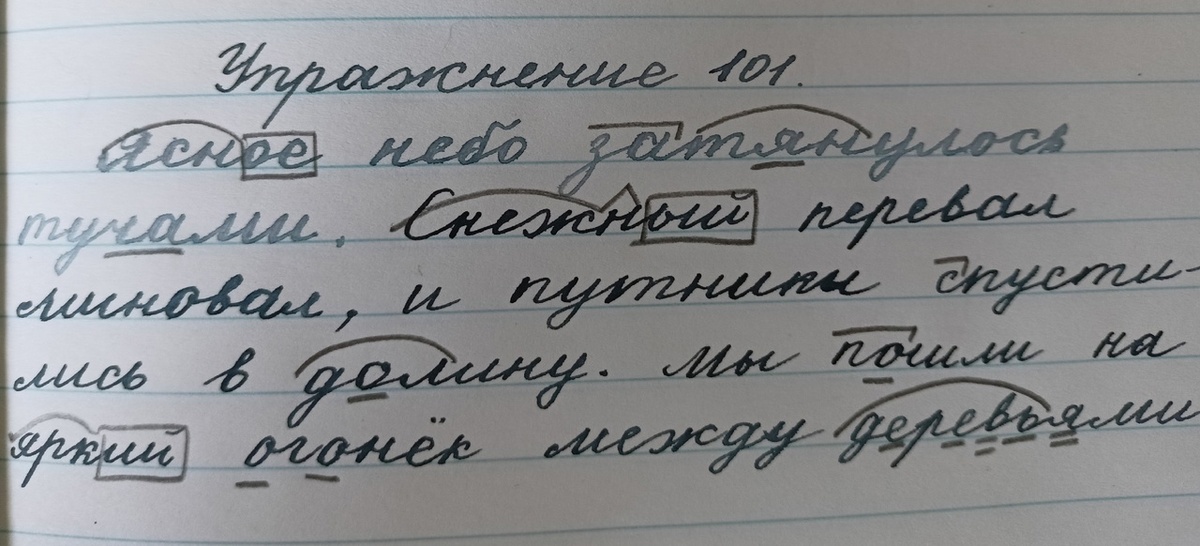 Упражнение 101.
Ясное небо затянулось
тучами. Снежный перевал
миновал, и путники спусти-
лись в долину. Мы пошли на
яркий огонёк между деревьями